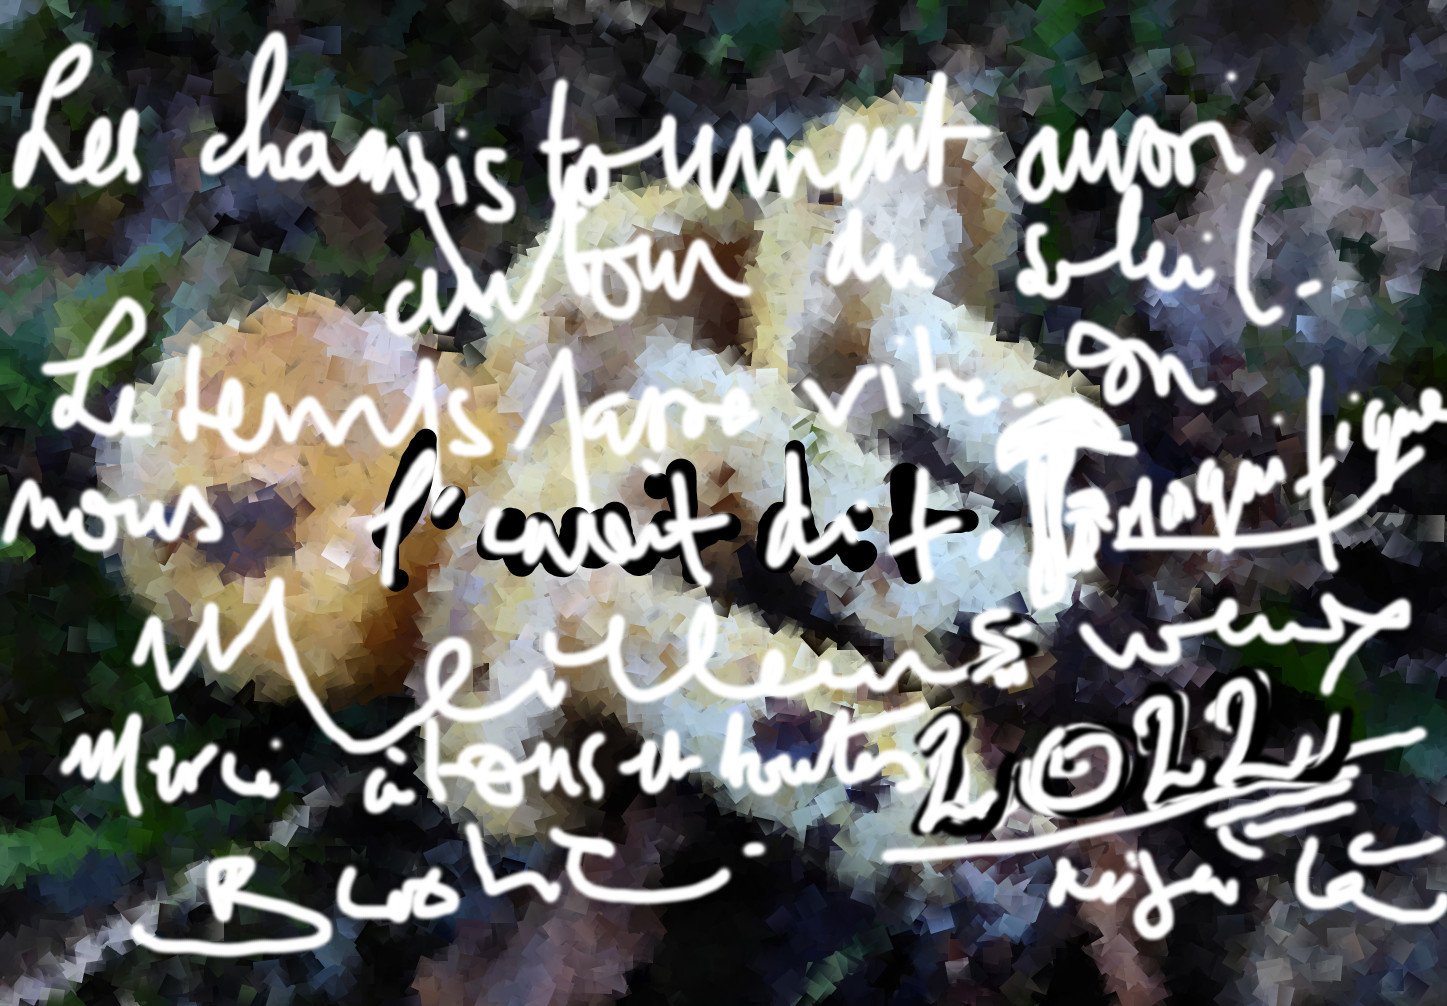 Les champis tournent aussi
autour du soleil.
Le temps passe vite. On
nous l'avait dit. magnifique
Meilleurs vœux
Merci à tous et toutes 2022
déjà là